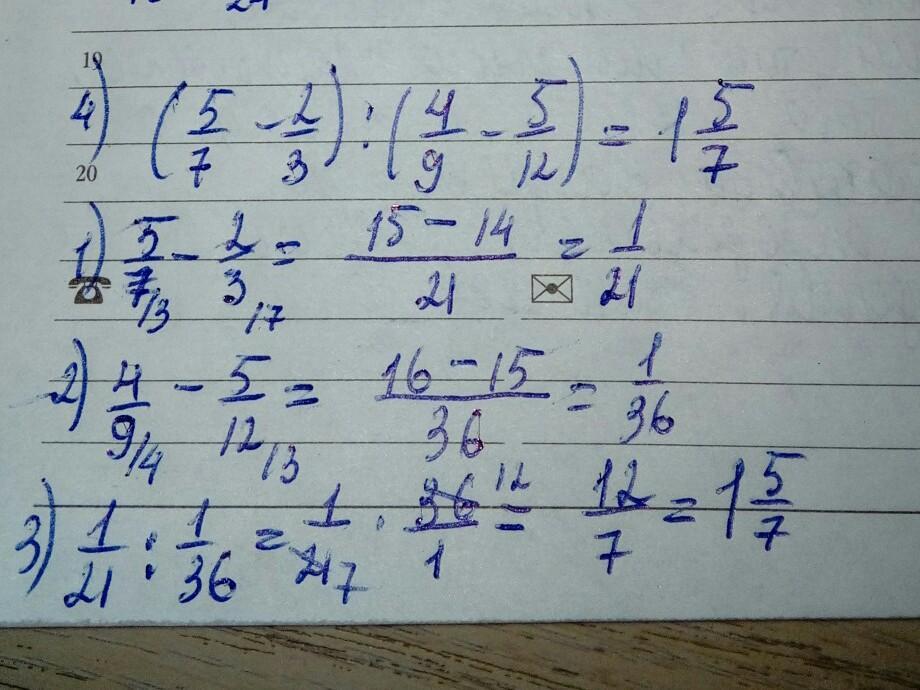 19
4) (5/7 - 2/3) : (4/9 - 5/12) = 1 5/7
20
1) 5/7 /3 - 2/3 /7 = 15 - 14/21 = 1/21
2) 4/9 /4 - 5/12 /3 = 16 - 15/36 = 1/36
3) 1/21 : 1/36 = 1/21 7 · 36 12/1 = 12/7 = 1 5/7